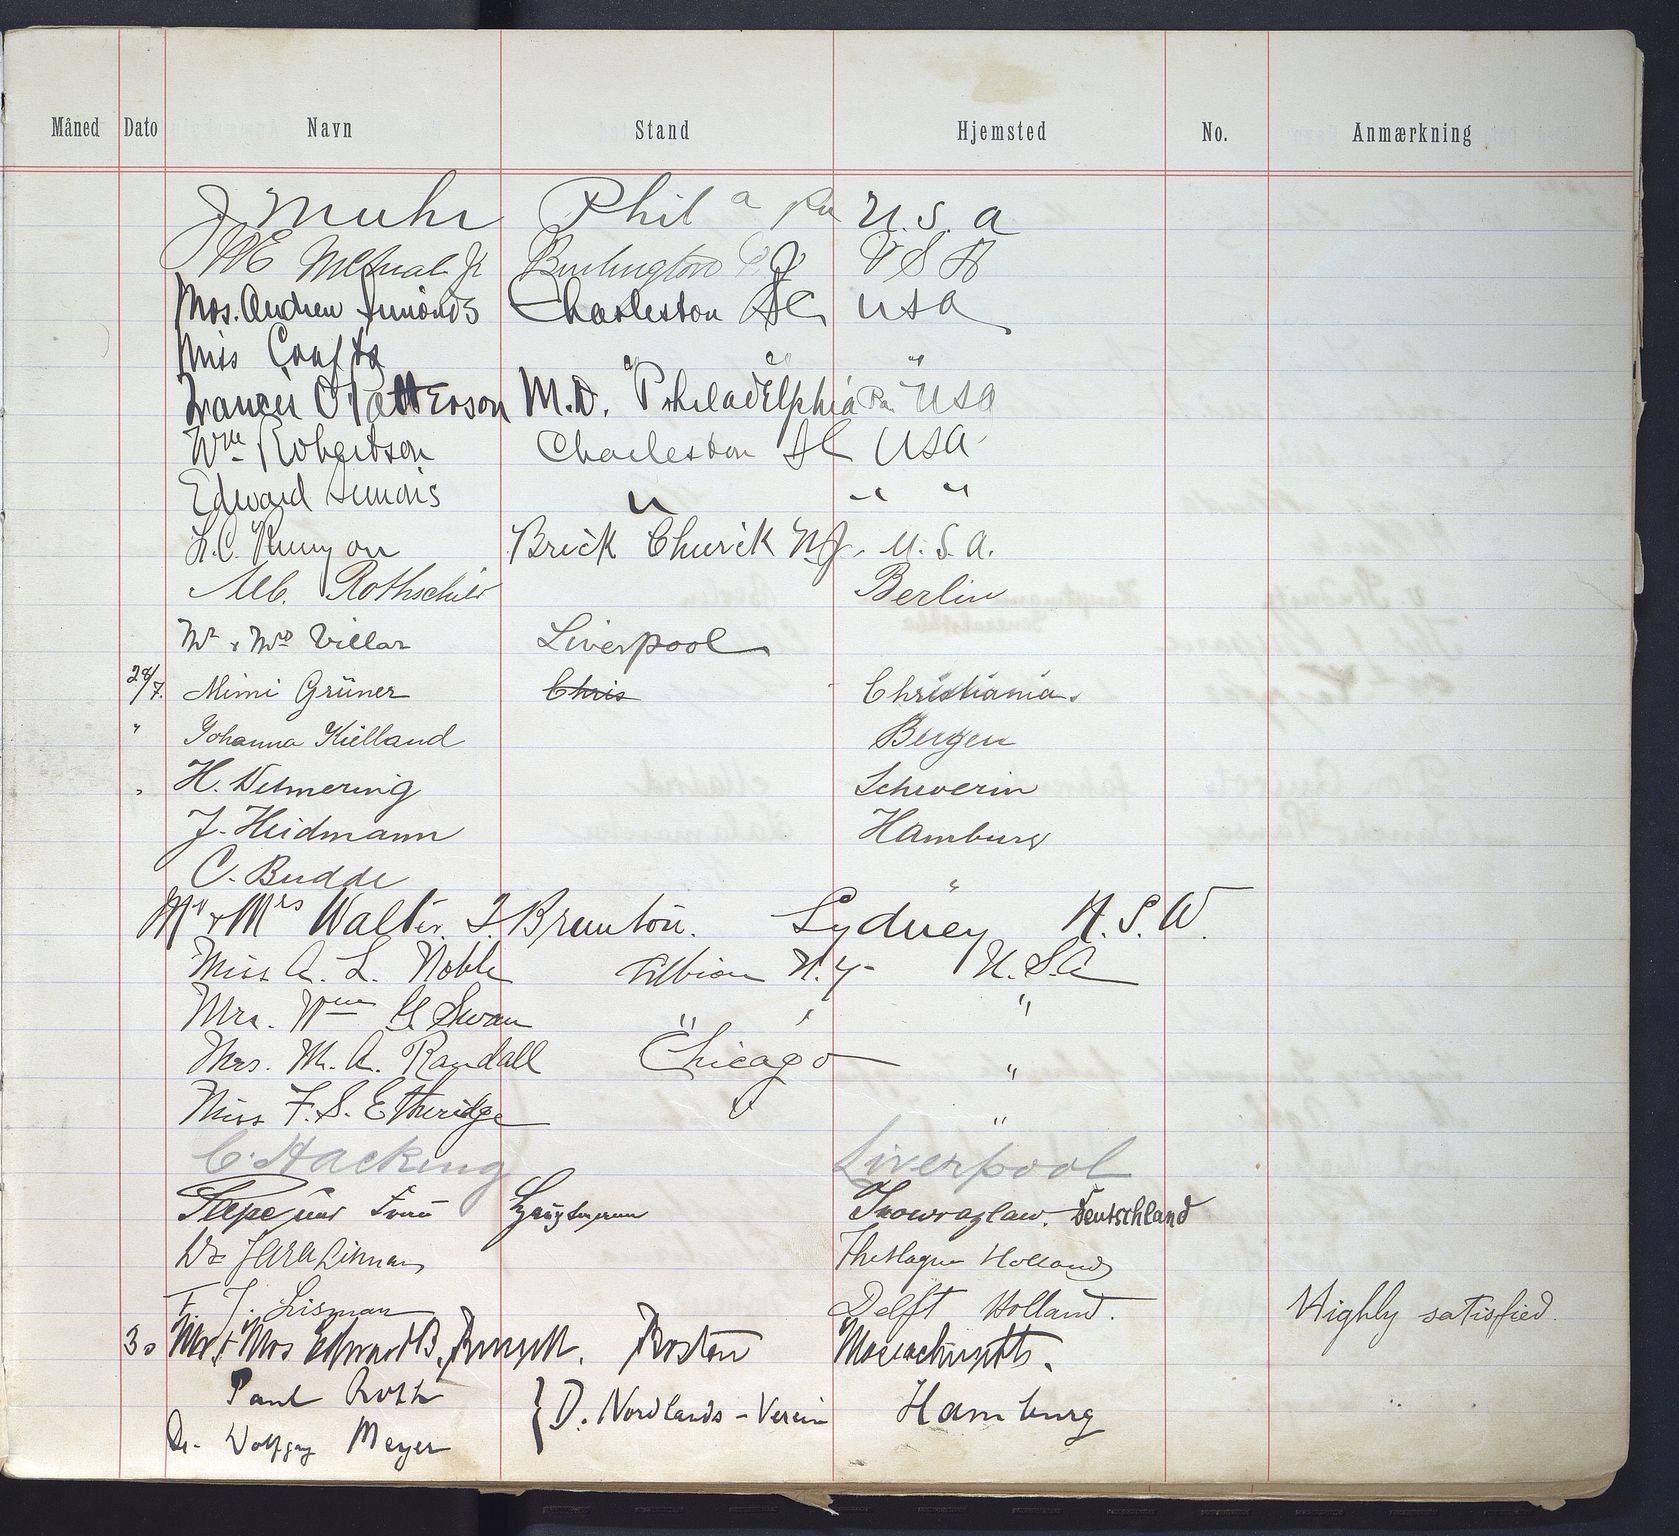 Måned Dato Navn Stand Hjemsted No. Anmærkning
J Muhr Phila Pa U.S.A
Burlington N.J U S A
Mrs. Andrew Simonds Charleston SC USA
Miss " " "
Francis O Patterson M.D. Philadelphia Pa USA
Wm Robertson Charleston SC USA
Edward Simons " " "
L.C. Runyon Brick Church N.J. U.S.A.
Alb. Rothschild Berlin
Mr & Mrs Villar Liverpool
28/7. Mimi Grüner Chris Christiania.
" Johanna Kielland Bergen
" H. Schwerin
J. Heidmann Hamburg
C. Budde "
Mr & Mrs Walter J. Brunton. Sydney N.S.W.
Miss A. L. Noble Albion N.Y- U.S.A
Mrs. Wm G Swan " " "
Mrs. M. A. Randall Chicago "
Miss F. S. Etheridge " "
C. Hacking Liverpool
und Frau Inowrazlaw. Deutschland
The Hague Holland
F. J. Lisman Delft Holland. Highly satisfied.
30 Mr & Mrs Edward B. Boston Massachusetts.
Paul Roth } D. Nordlands-Verein Hamburg
Dr. Wolfgang Meyer